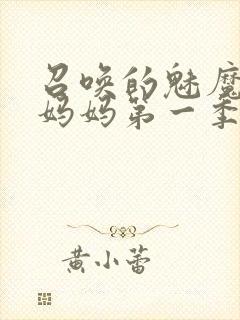 召唤的魅魔
妈妈第一季
黄小蕾